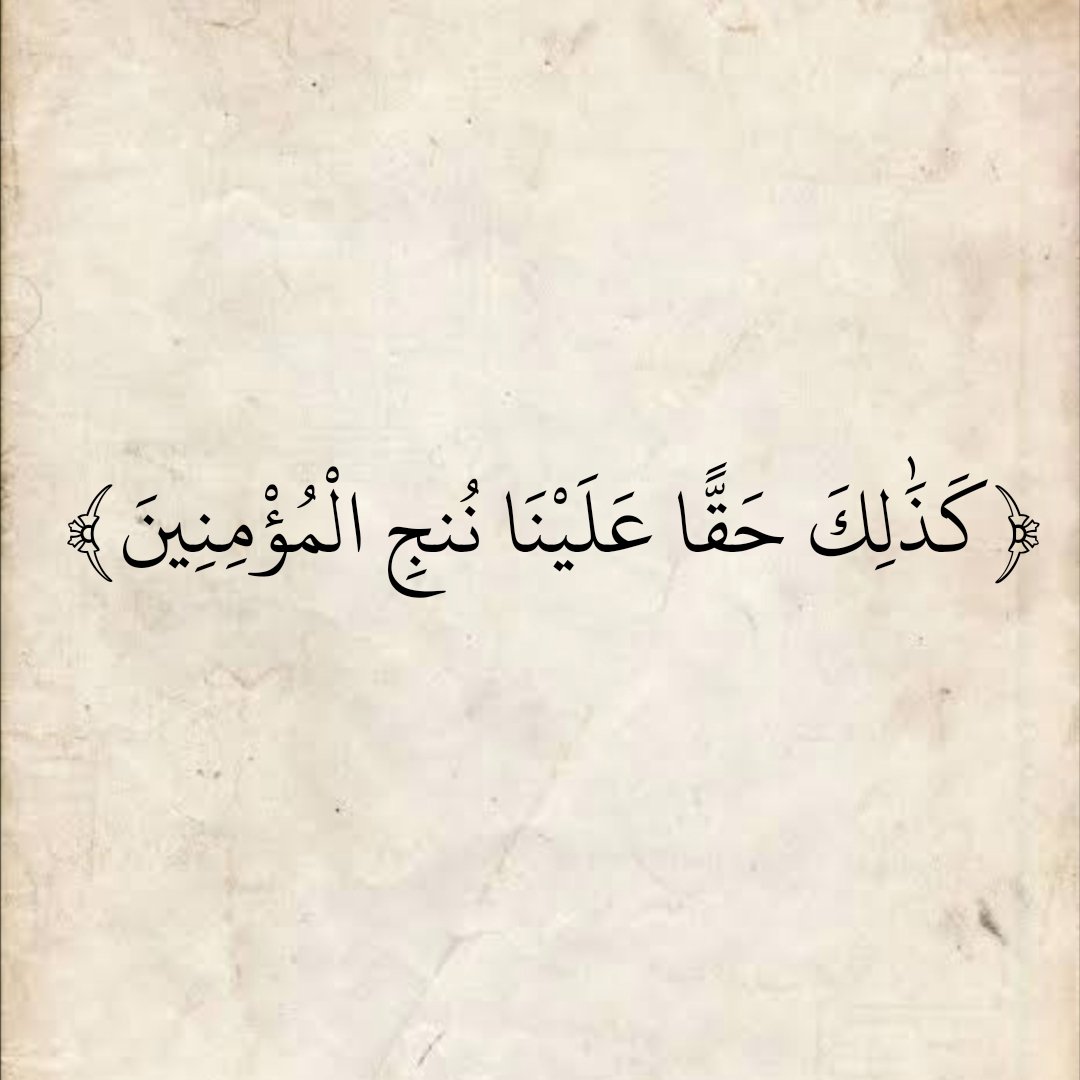 ﴿كَذَٰلِكَ حَقًّا عَلَيْنَا نُنجِ الْمُؤْمِنِينَ﴾